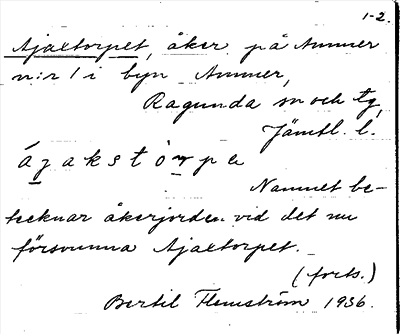 1-2.
Ajaxtorpet, åker på Ammer
n:r 1 i byn Ammer,
Ragunda sn och tg,
Jämtl. l.
ájakstòrpe
Namnet be-
tecknar åkerjorden vid det nu
försvunna Ajaxtorpet.
(forts.)
Bertil Flemström 1936.